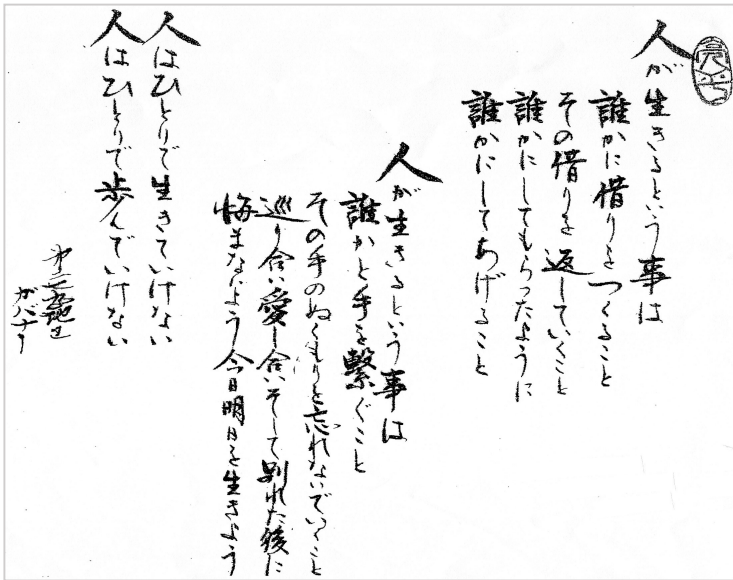 人が生きるという事は
誰かに借りをつくること
その借りを返していくこと
誰かにしてもらったように
誰かにしてあげること
人が生きるという事は
誰かと手を繋ぐこと
その手のぬくもりを忘れないでいくこと
巡り合い愛し合いそして別れた後に
悔まなたよう今日明日を生きよう
人はひとりで生きていけない
人はひとりで歩んでいけない
地区
ガバナー